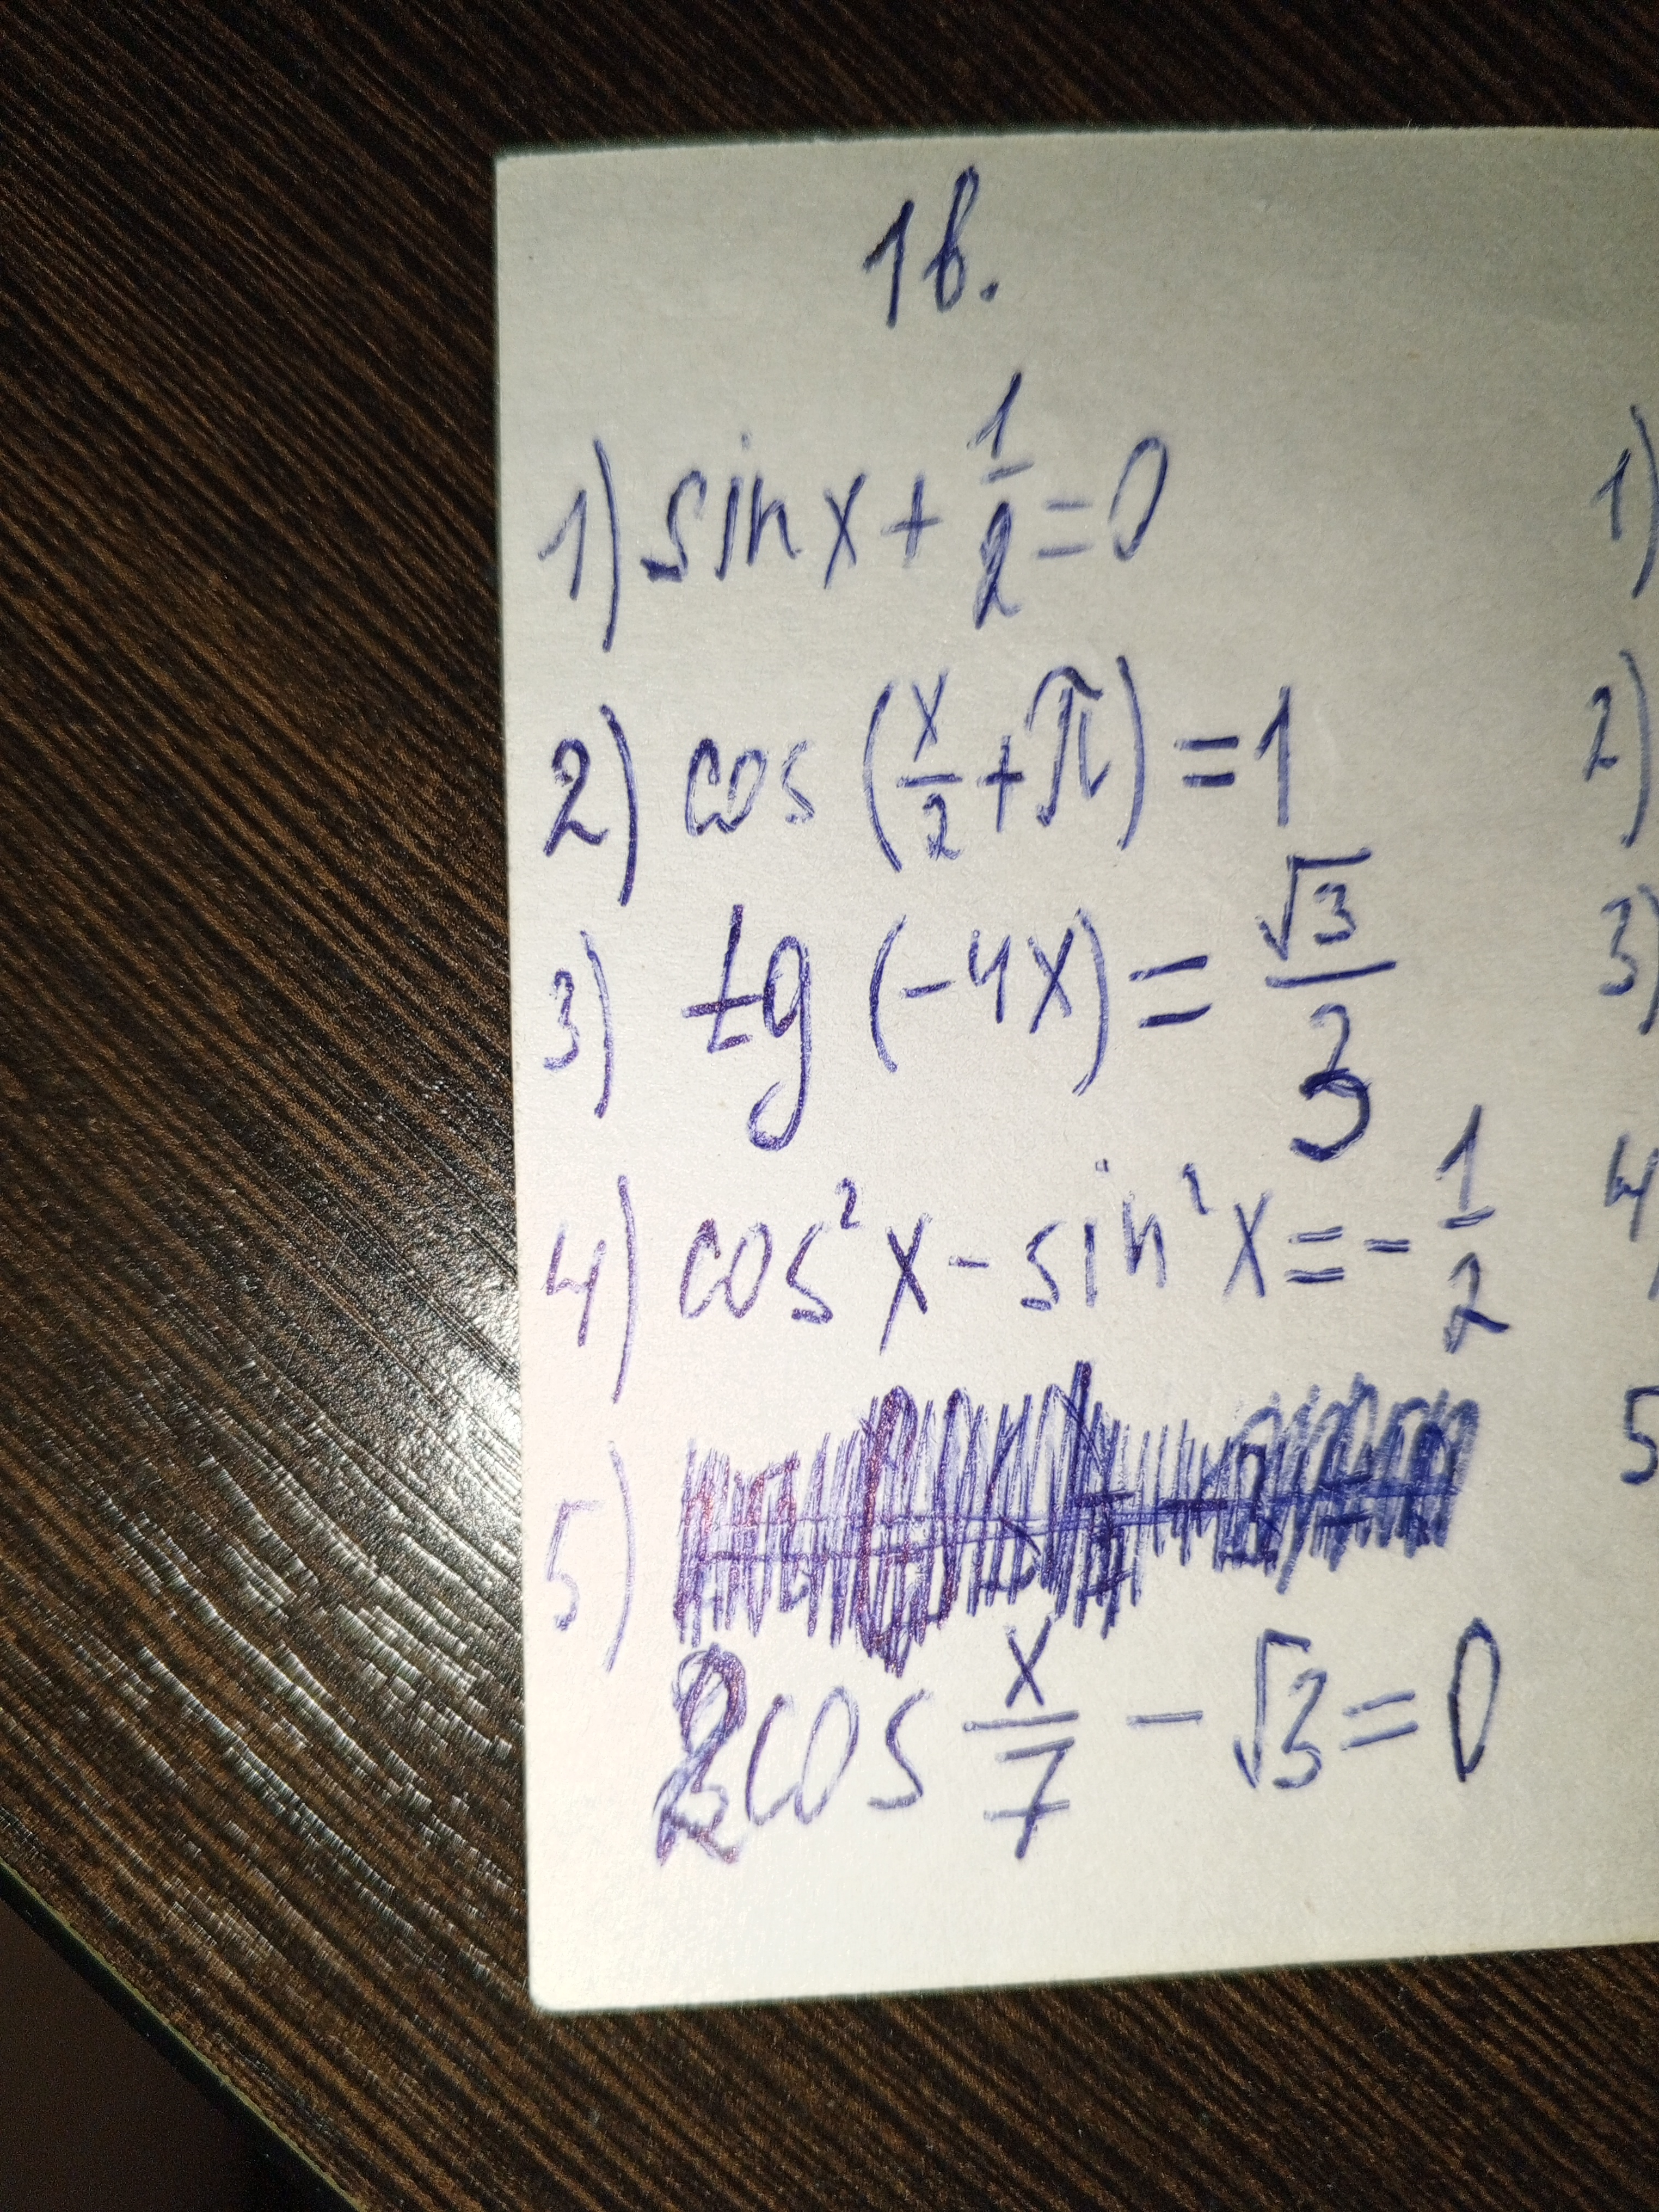 1в.
1) sin x + 1/2 = 0
2) cos (x/2 + π) = 1
3) tg (-4x) = √3/3
4) cos²x - sin²x = - 1/2
5)
2cos x/7 - √3 = 0
1)
2)
3)
4)
5